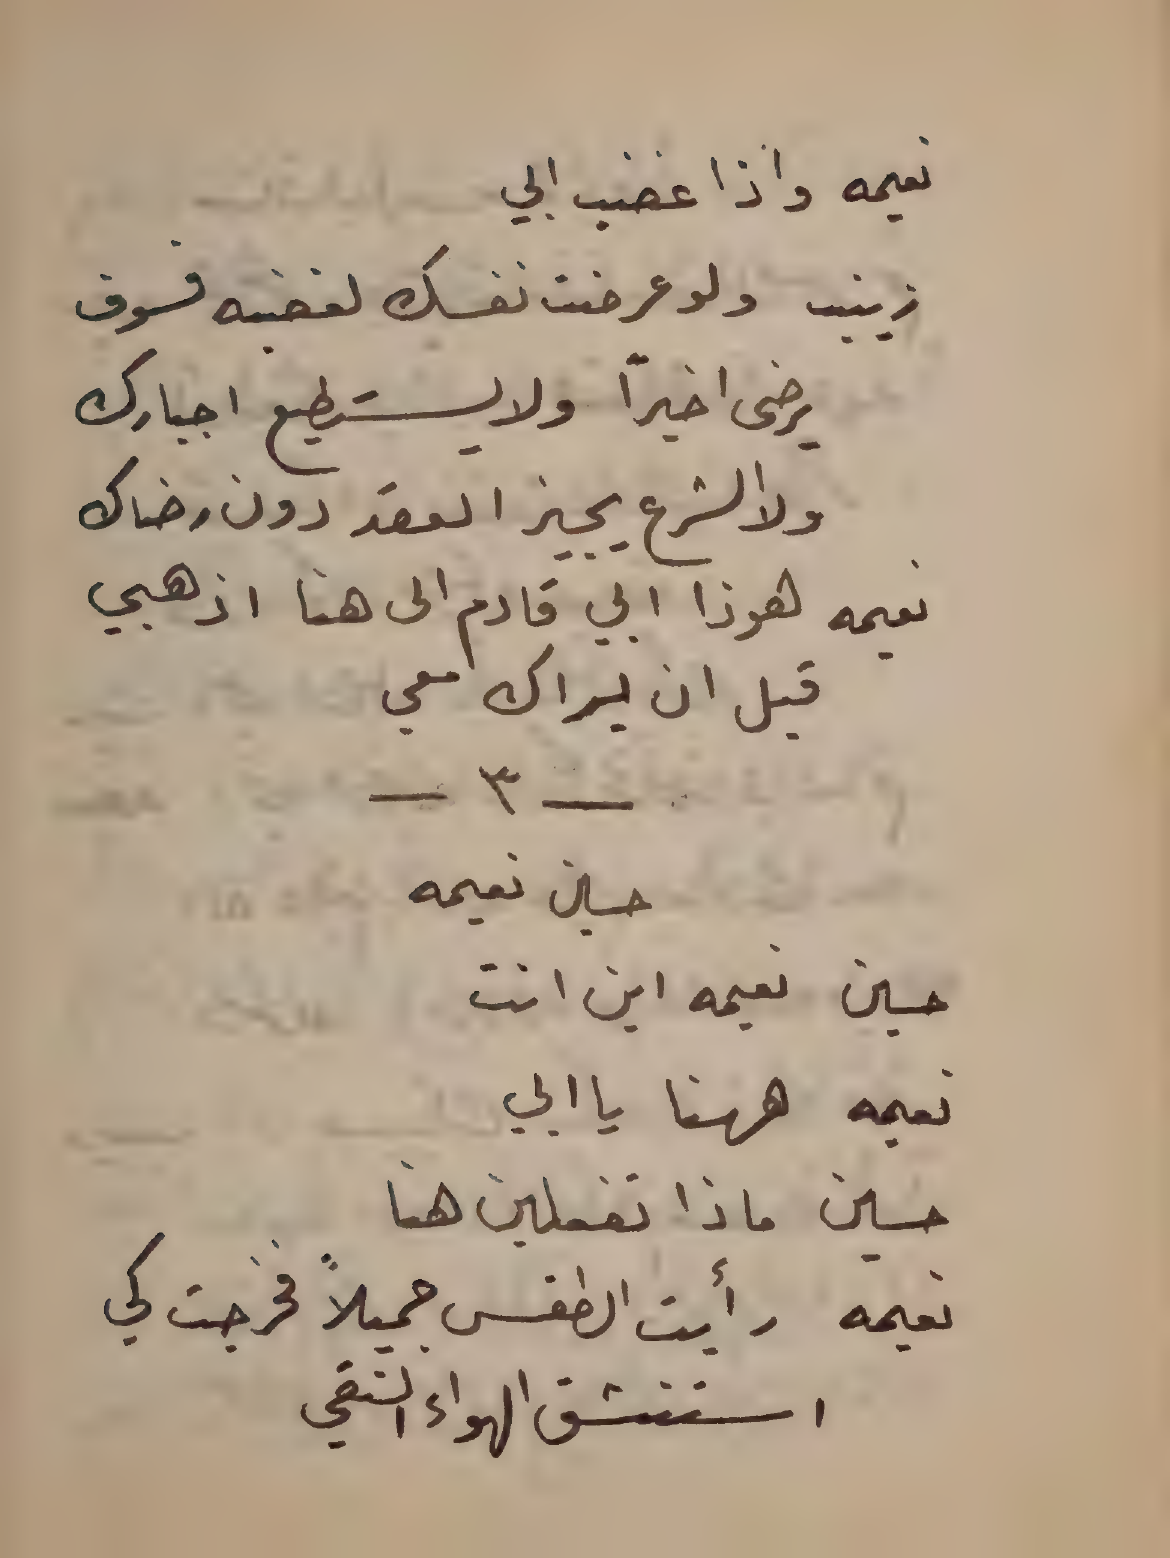 نعيمه واذا غضب ابي
زينب ولو عرضت نفسك لغضبه فسوف
يرضى اخيراً ولا يستطيع اجبارك
ولا الشرع يجيز العقد دون رضاك
نعيمه هوذا ابي قادم الى هنا اذهبي
قبل ان يراك معي
— ٣ —
حسين نعيمه
حسين نعيمه اين انت
نعيمه ههنا يا ابي
حسين ماذا تفعلين هنا
نعيمه رأيت الطقس جميلاً فخرجت كي
استنشق الهواء النقي